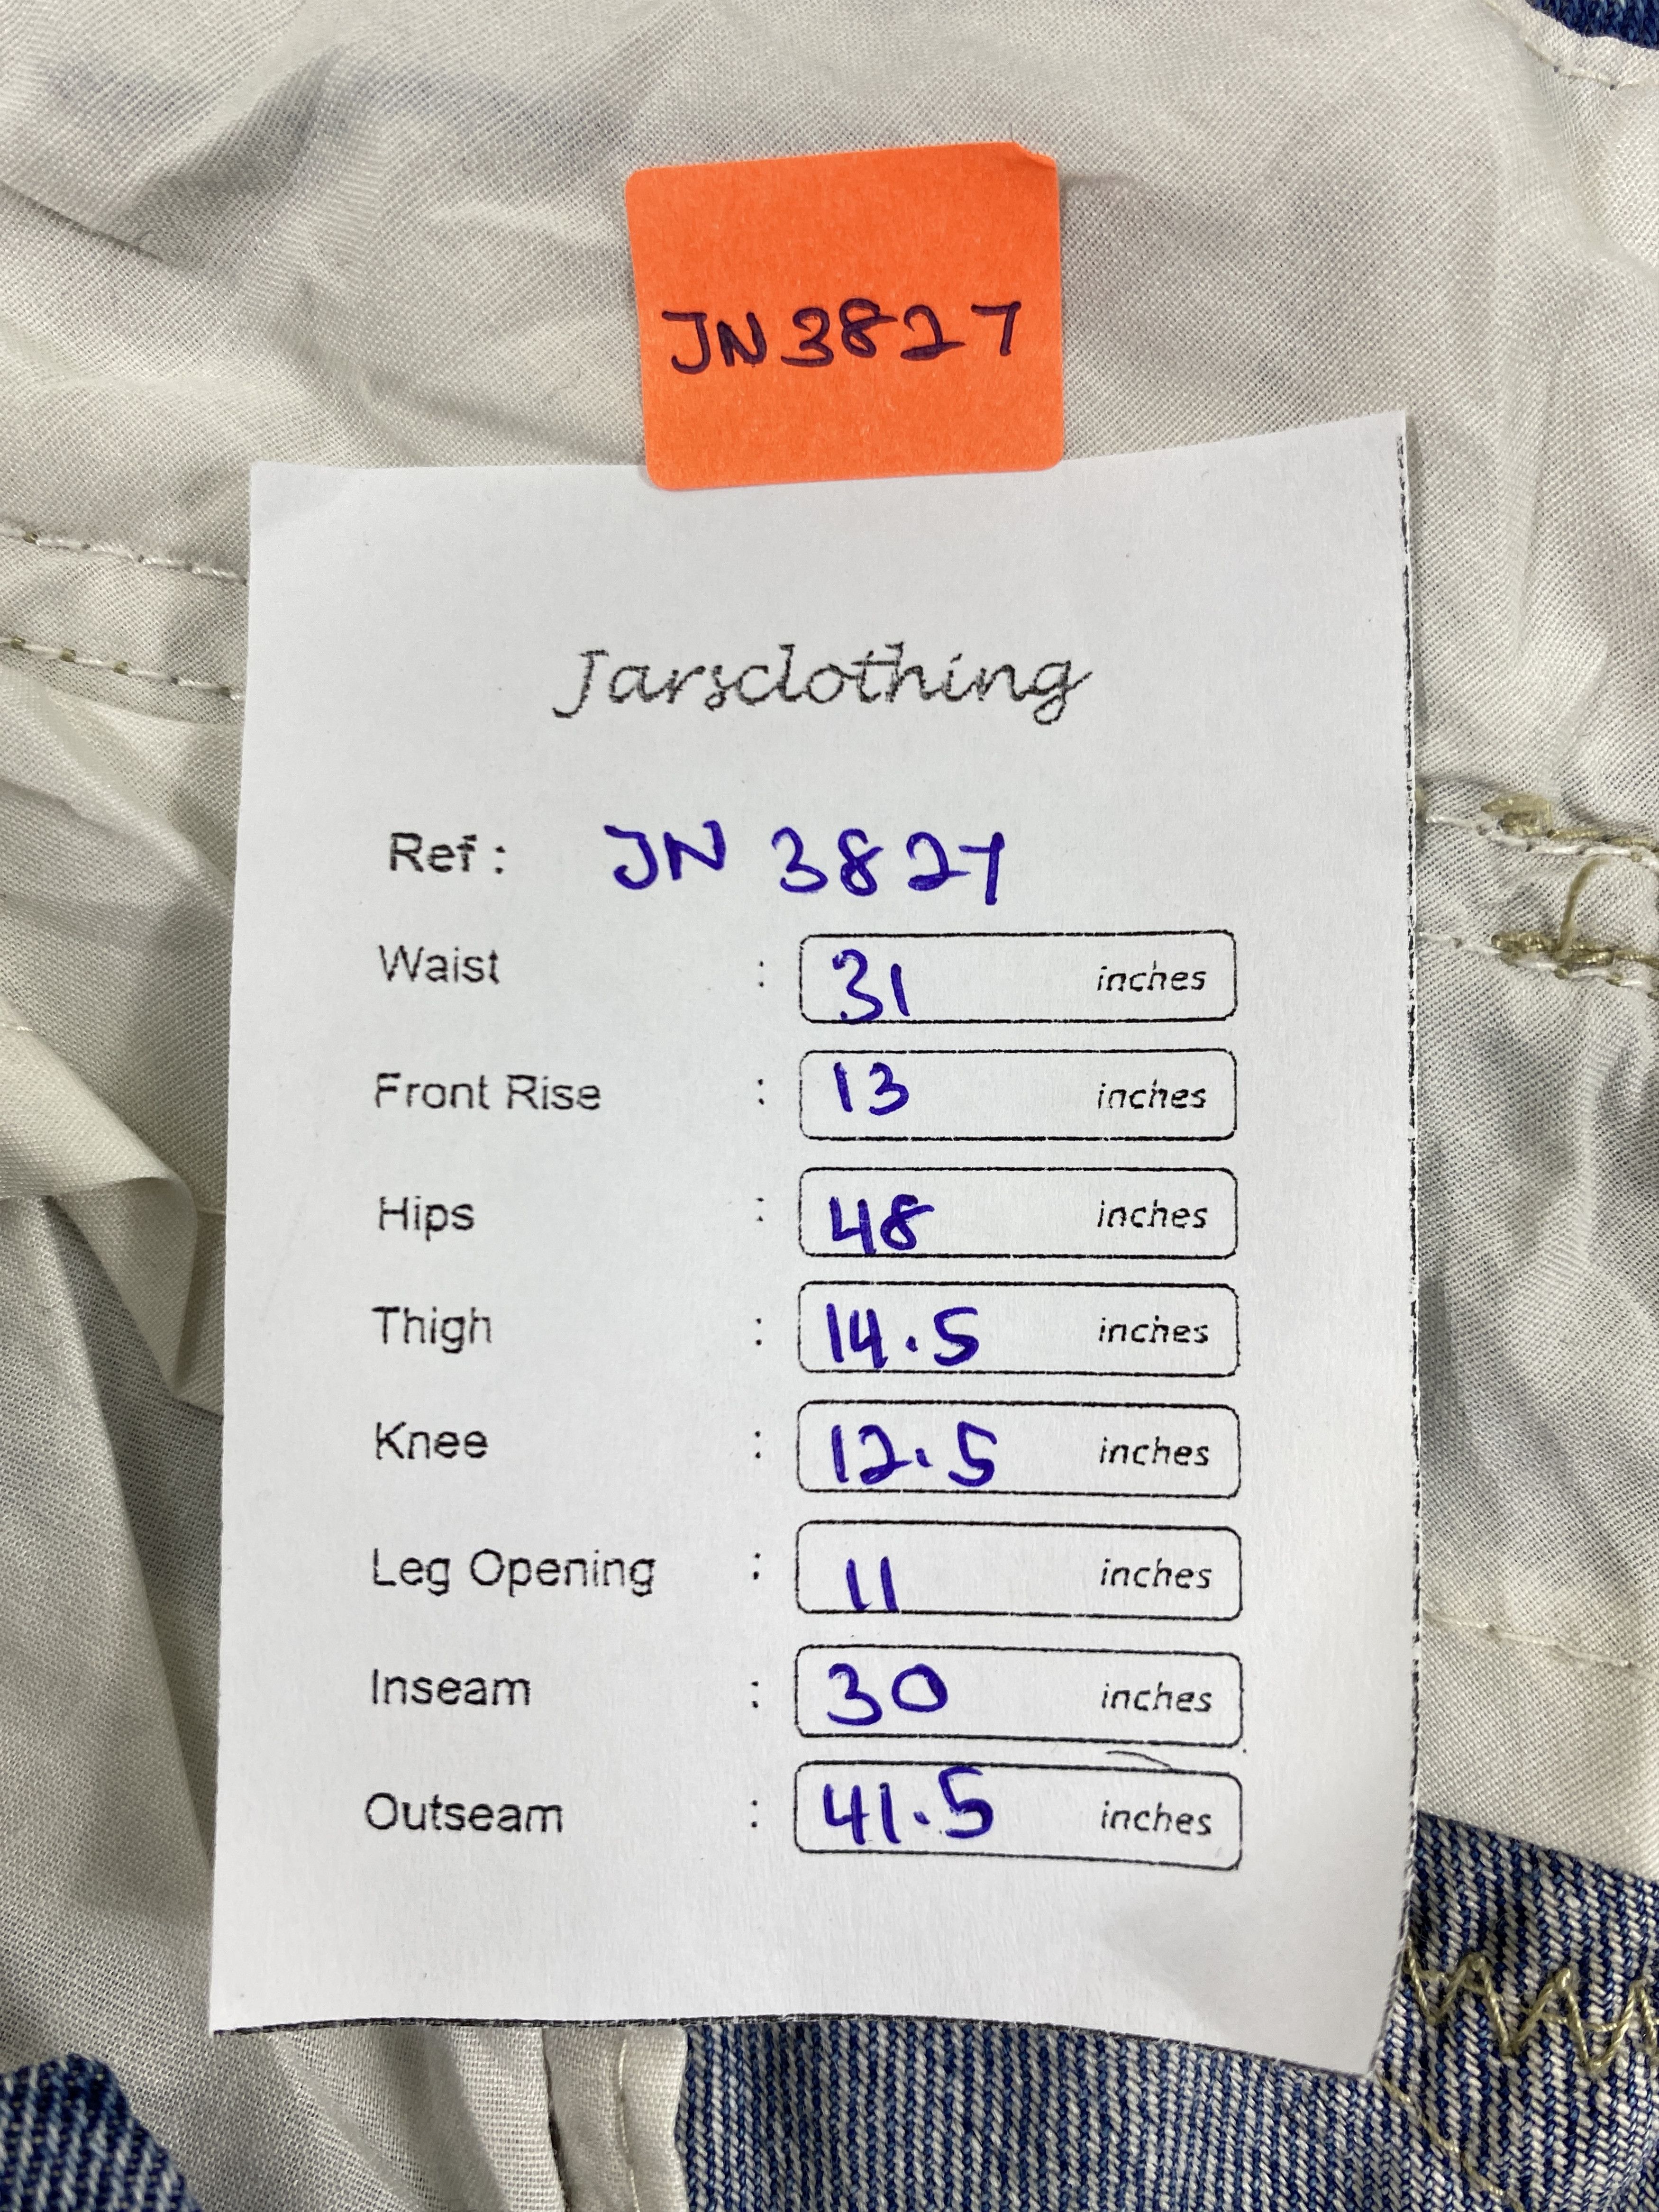 JN3827
Jarsclothing
Ref : JN 3827
Waist : 31 inches
Front Rise : 13 inches
Hips : 48 inches
Thigh : 14.5 inches
Knee : 12.5 inches
Leg Opening : 11 inches
Inseam : 30 inches
Outseam : 41.5 inches